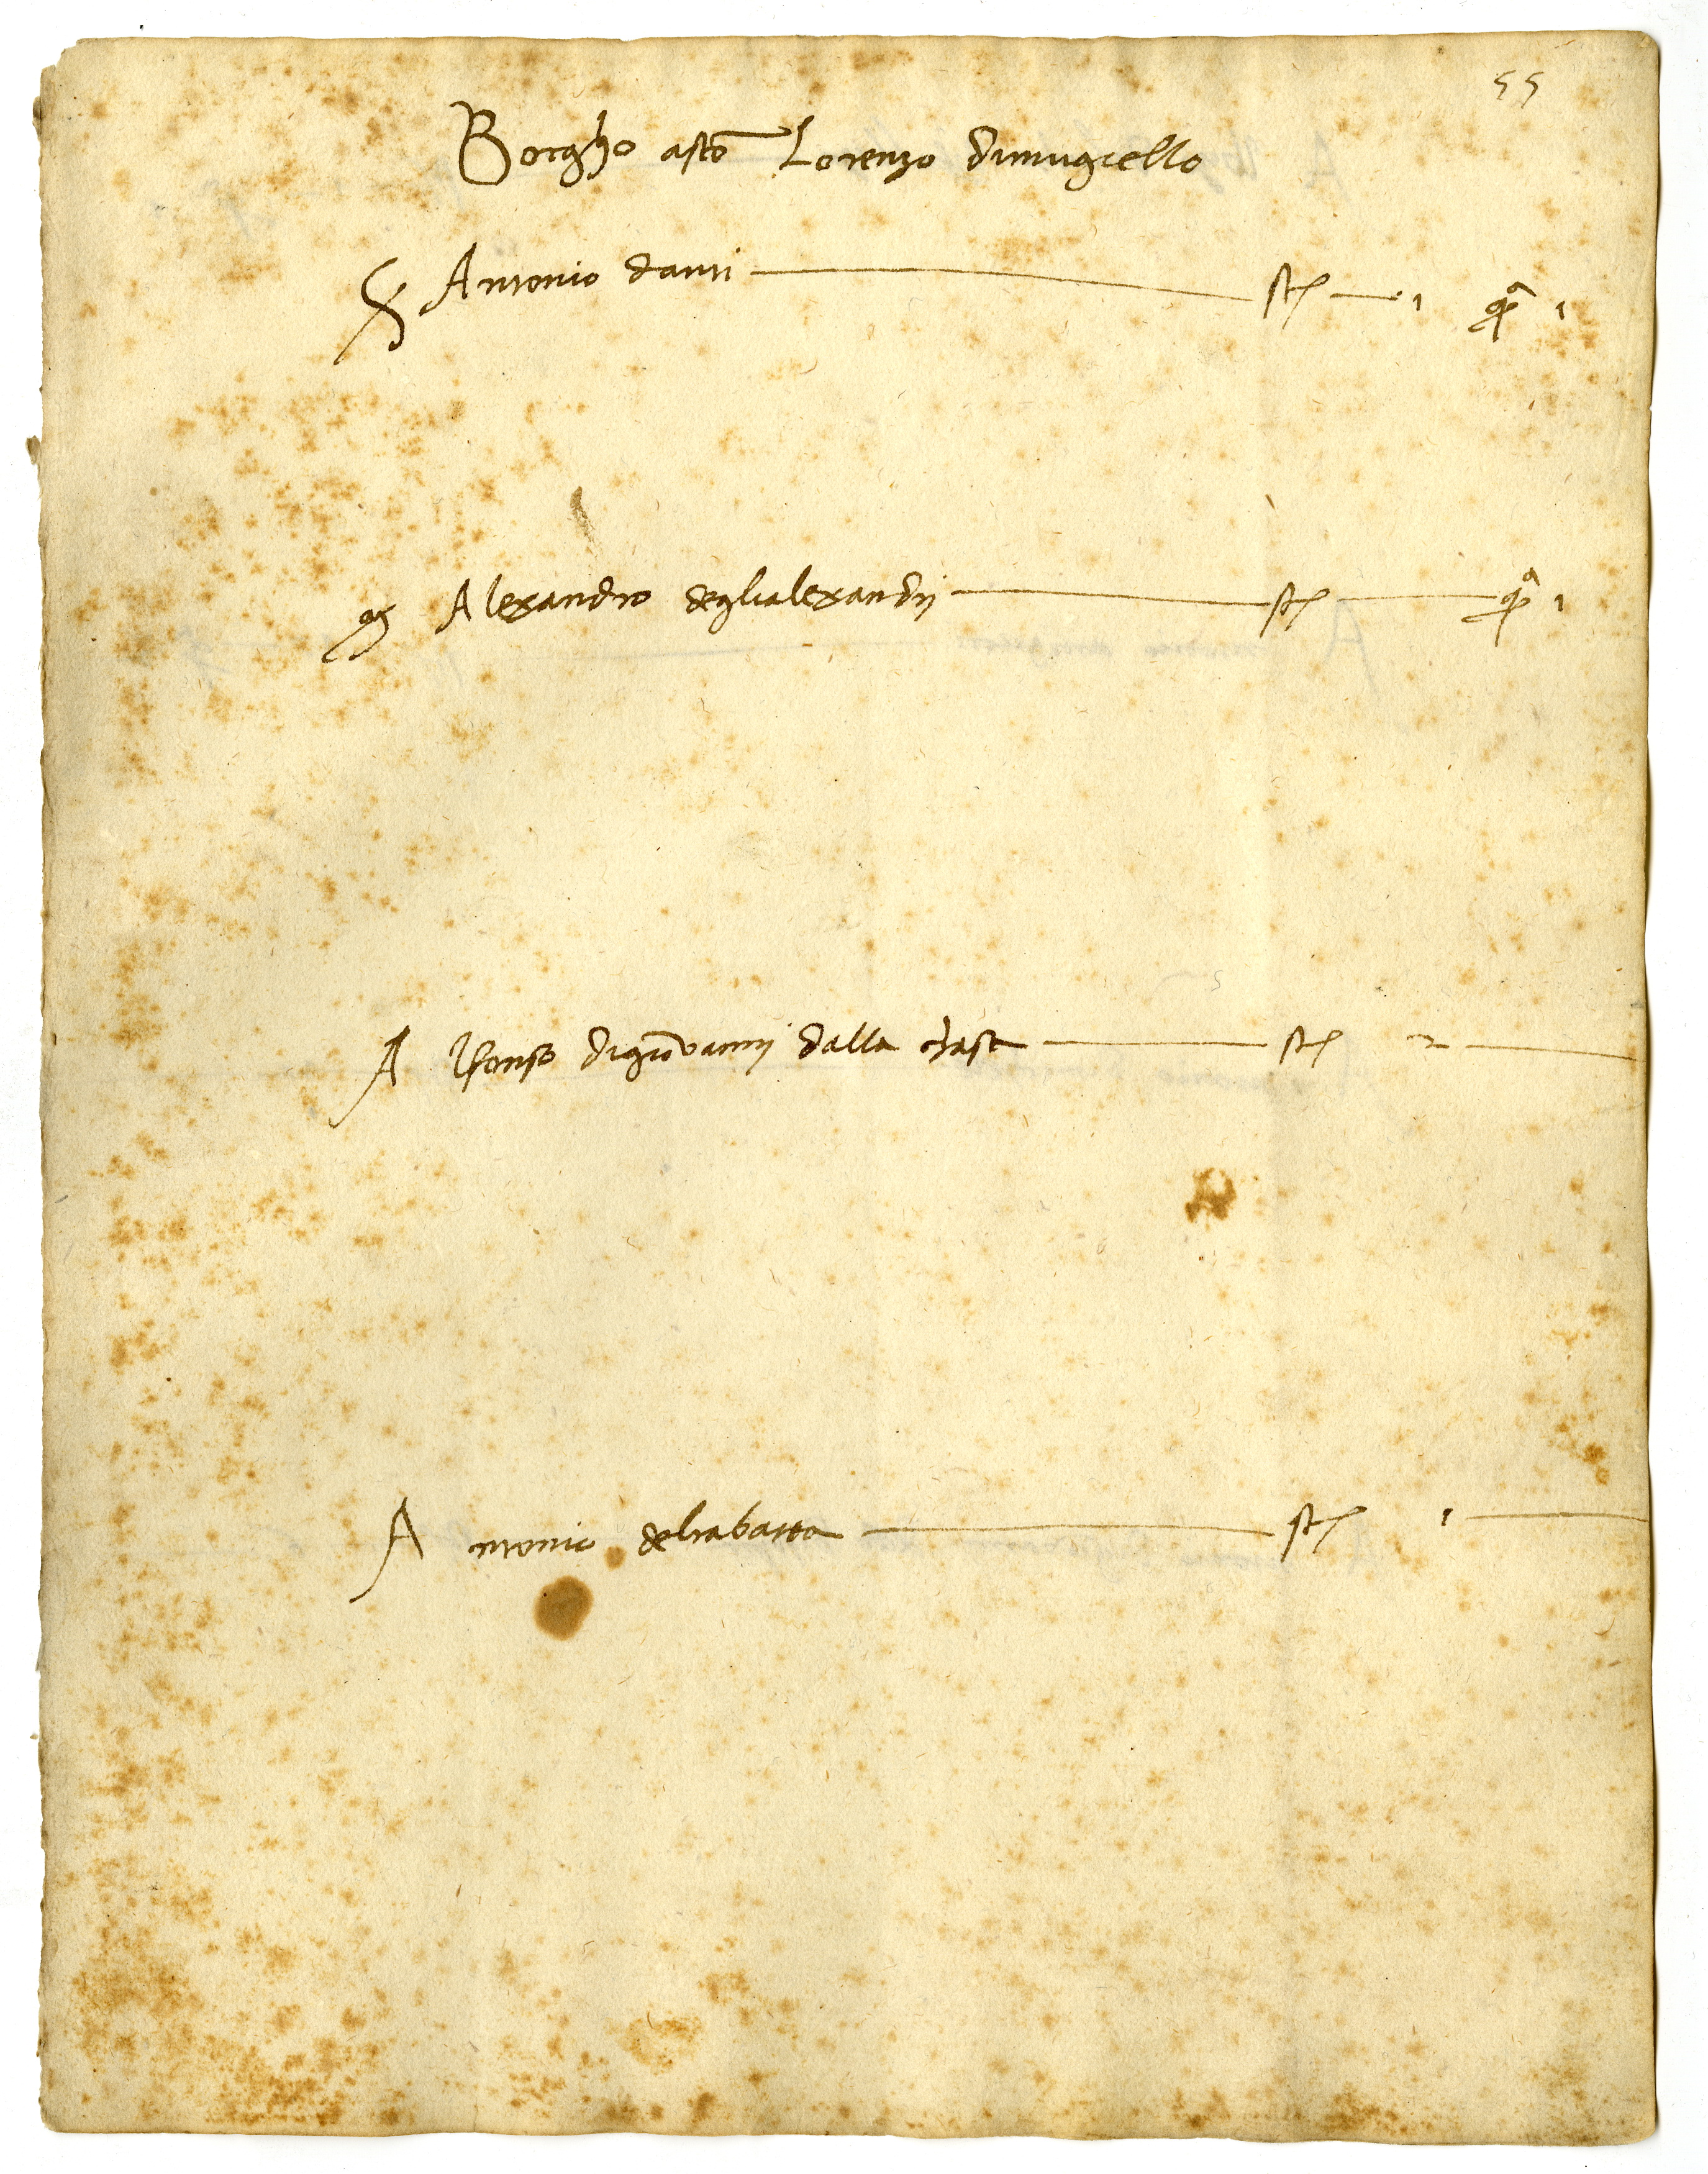 55
Borgho asto Lorenzo dimugiello
Antonio danti st 1 qa 1
mº Alexandro deglialexandrj st qa 1
Alfonso digiovannj dalla chasa st 2
Antonio delrabatta st 1